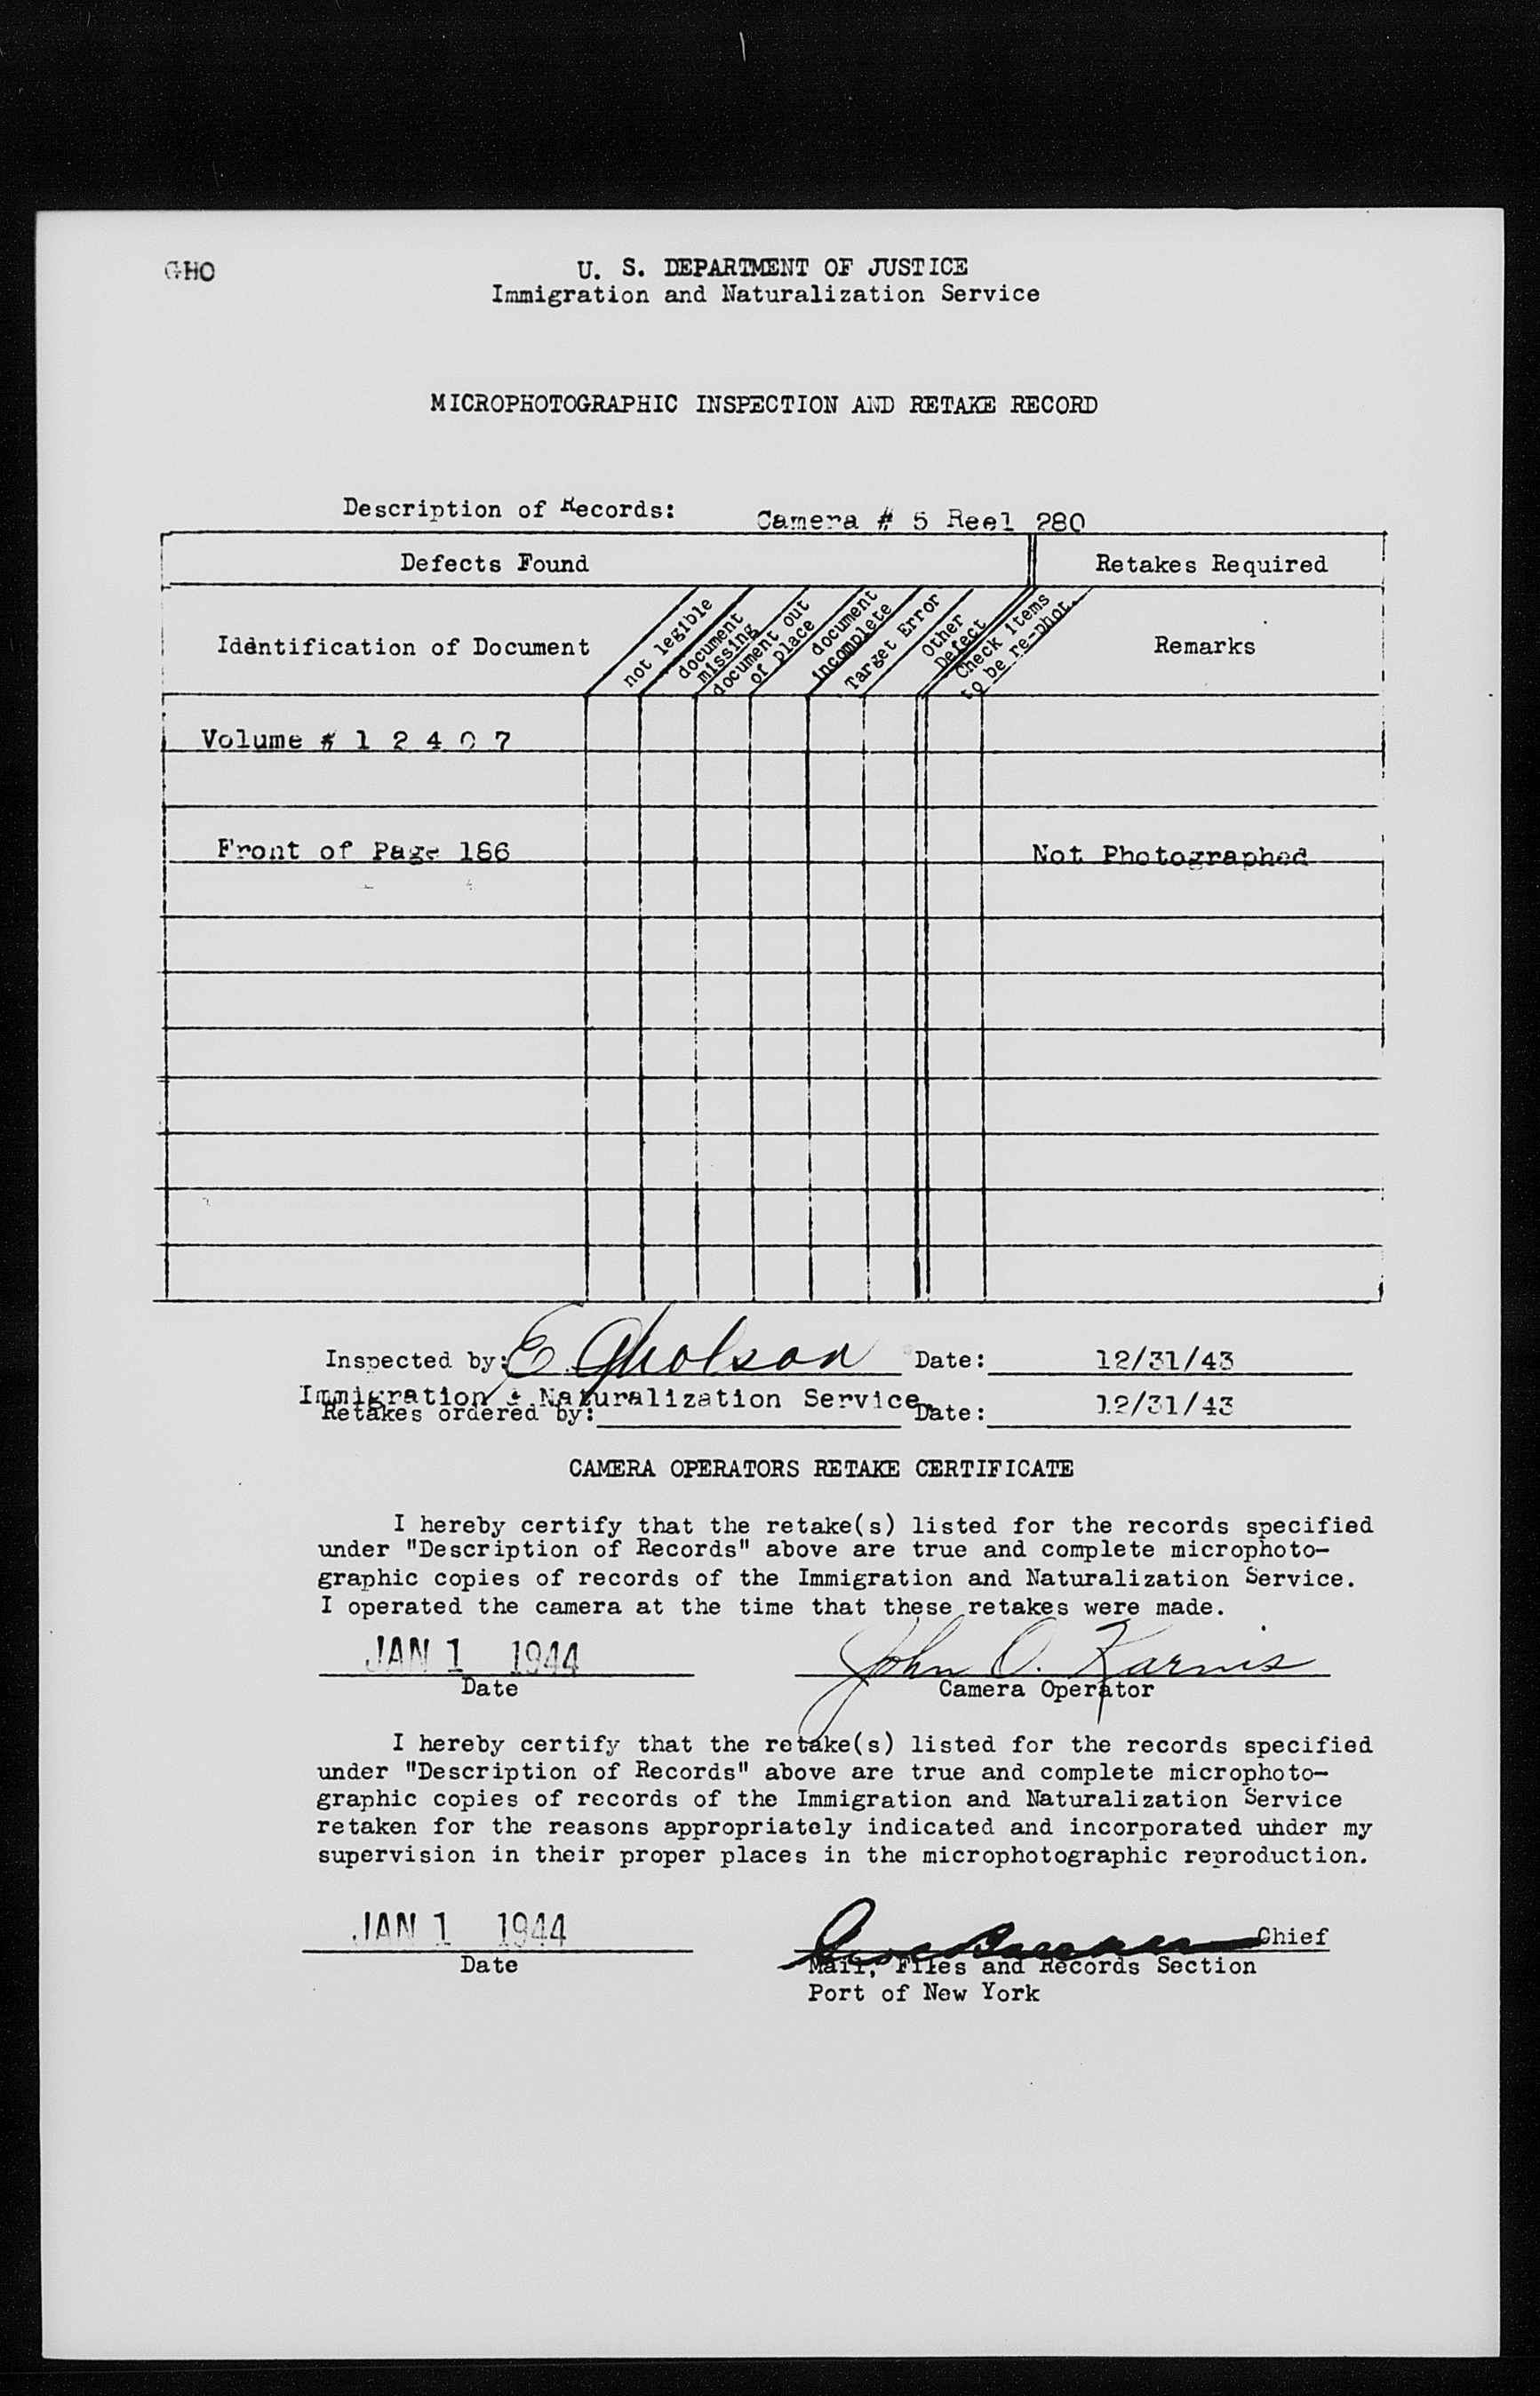 GHO
U. S. DEPARTMENT OF JUSTICE
Immigration and Naturalization Service
MICROPHOTOGRAPHIC INSPECTION AND RETAKE RECORD
Description of Records: Camera # 5 Reel 280
Defects Found
Retakes Required
Identification of Document
not legible
document
missing
document out
of place
document
incomplete
Target Error
Other
Defect
Check items
to be re-phot.
Remarks
Volume # 1 2 4 0 7
Front of Page 186 Not Photographed
Inspected by: E. Gholson Date: 12/31/43
Immigration & Naturalization Service
Retakes ordered by: Date: 12/31/43
CAMERA OPERATORS RETAKE CERTIFICATE
I hereby certify that the retake(s) listed for the records specified
under "Description of Records" above are true and complete microphoto-
graphic copies of records of the Immigration and Naturalization Service.
I operated the camera at the time that these retakes were made.
JAN 1 1944 John O. Karnis
Date Camera Operator
I hereby certify that the retake(s) listed for the records specified
under "Description of Records" above are true and complete microphoto-
graphic copies of records of the Immigration and Naturalization Service
retaken for the reasons appropriately indicated and incorporated under my
supervision in their proper places in the microphotographic reproduction.
JAN 1 1944 Chief
Date Mail, Files and Records Section
Port of New York